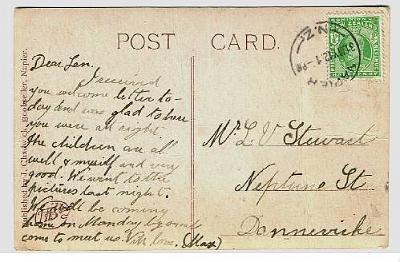 POST CARD.
DOMINION OF
NEW ZEALAND
Dear Len.
I received
you welcome letter to-
day and was glad to hear
you were all right.
The children are all
well & myself and very
good. We went to the
pictures last night.
We will be coming
home on Monday by
come to meet us. With love. (Max)
Mr L V Stewart
Neptune St.
Dannevirke
Published by J. Charlesworth, Bookseller, Napier.